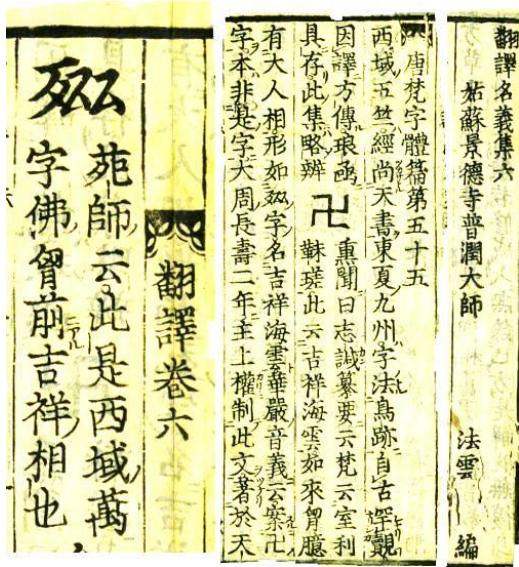 翻譯名義集六
姑蘇景德寺普潤大師 法雲 編
唐梵字體篇第五十五
西域五竺經尚天書東夏九州字法鳥跡自古罕覿
因譯方傳琅函
具存此集略辨
卍
熏聞曰志誠纂要云梵云室利
靺瑳此云吉祥海雲如來胷臆
有大人相形如字名吉祥海雲華嚴音義云案卍
字本非是字大周長壽二年主上權制此文著於天
翻譯卷六
苑師云此是西域萬
字佛胷前吉祥相也